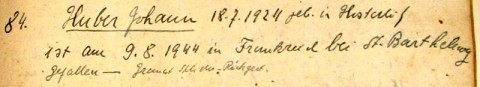 84. Huber Johann 18.7.1924 geb. in
ist am 9.8.1944 in Frankreich bei St. Barthelmy
gefallen —